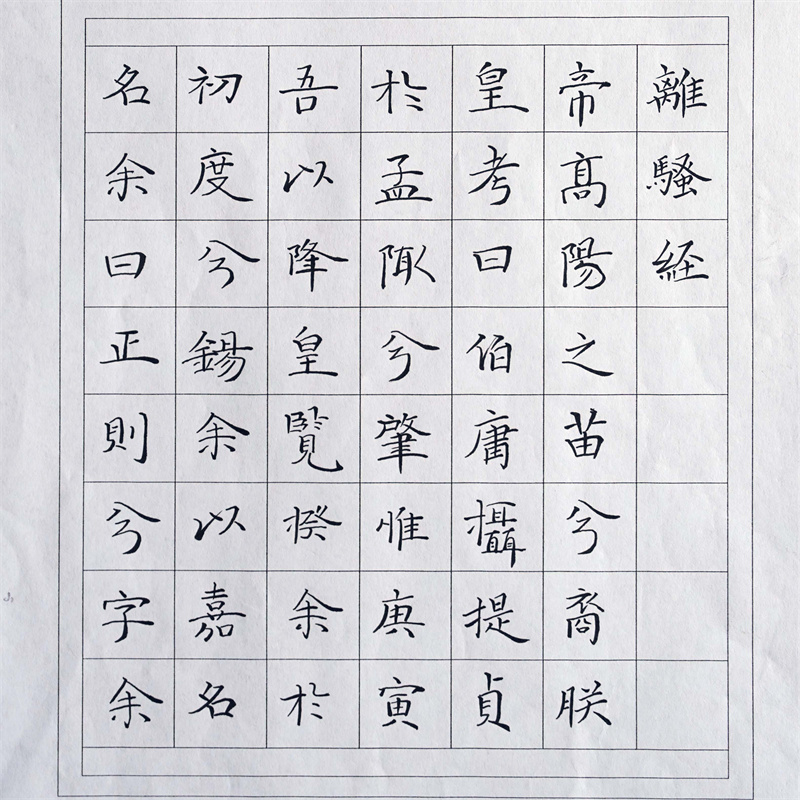 離騷経
帝髙陽之苗兮裔朕
皇考曰伯庸攝提貞
於孟陬兮肇惟庚寅
吾以降皇覽揆余於
初度兮錫余以嘉名
名余曰正則兮字余